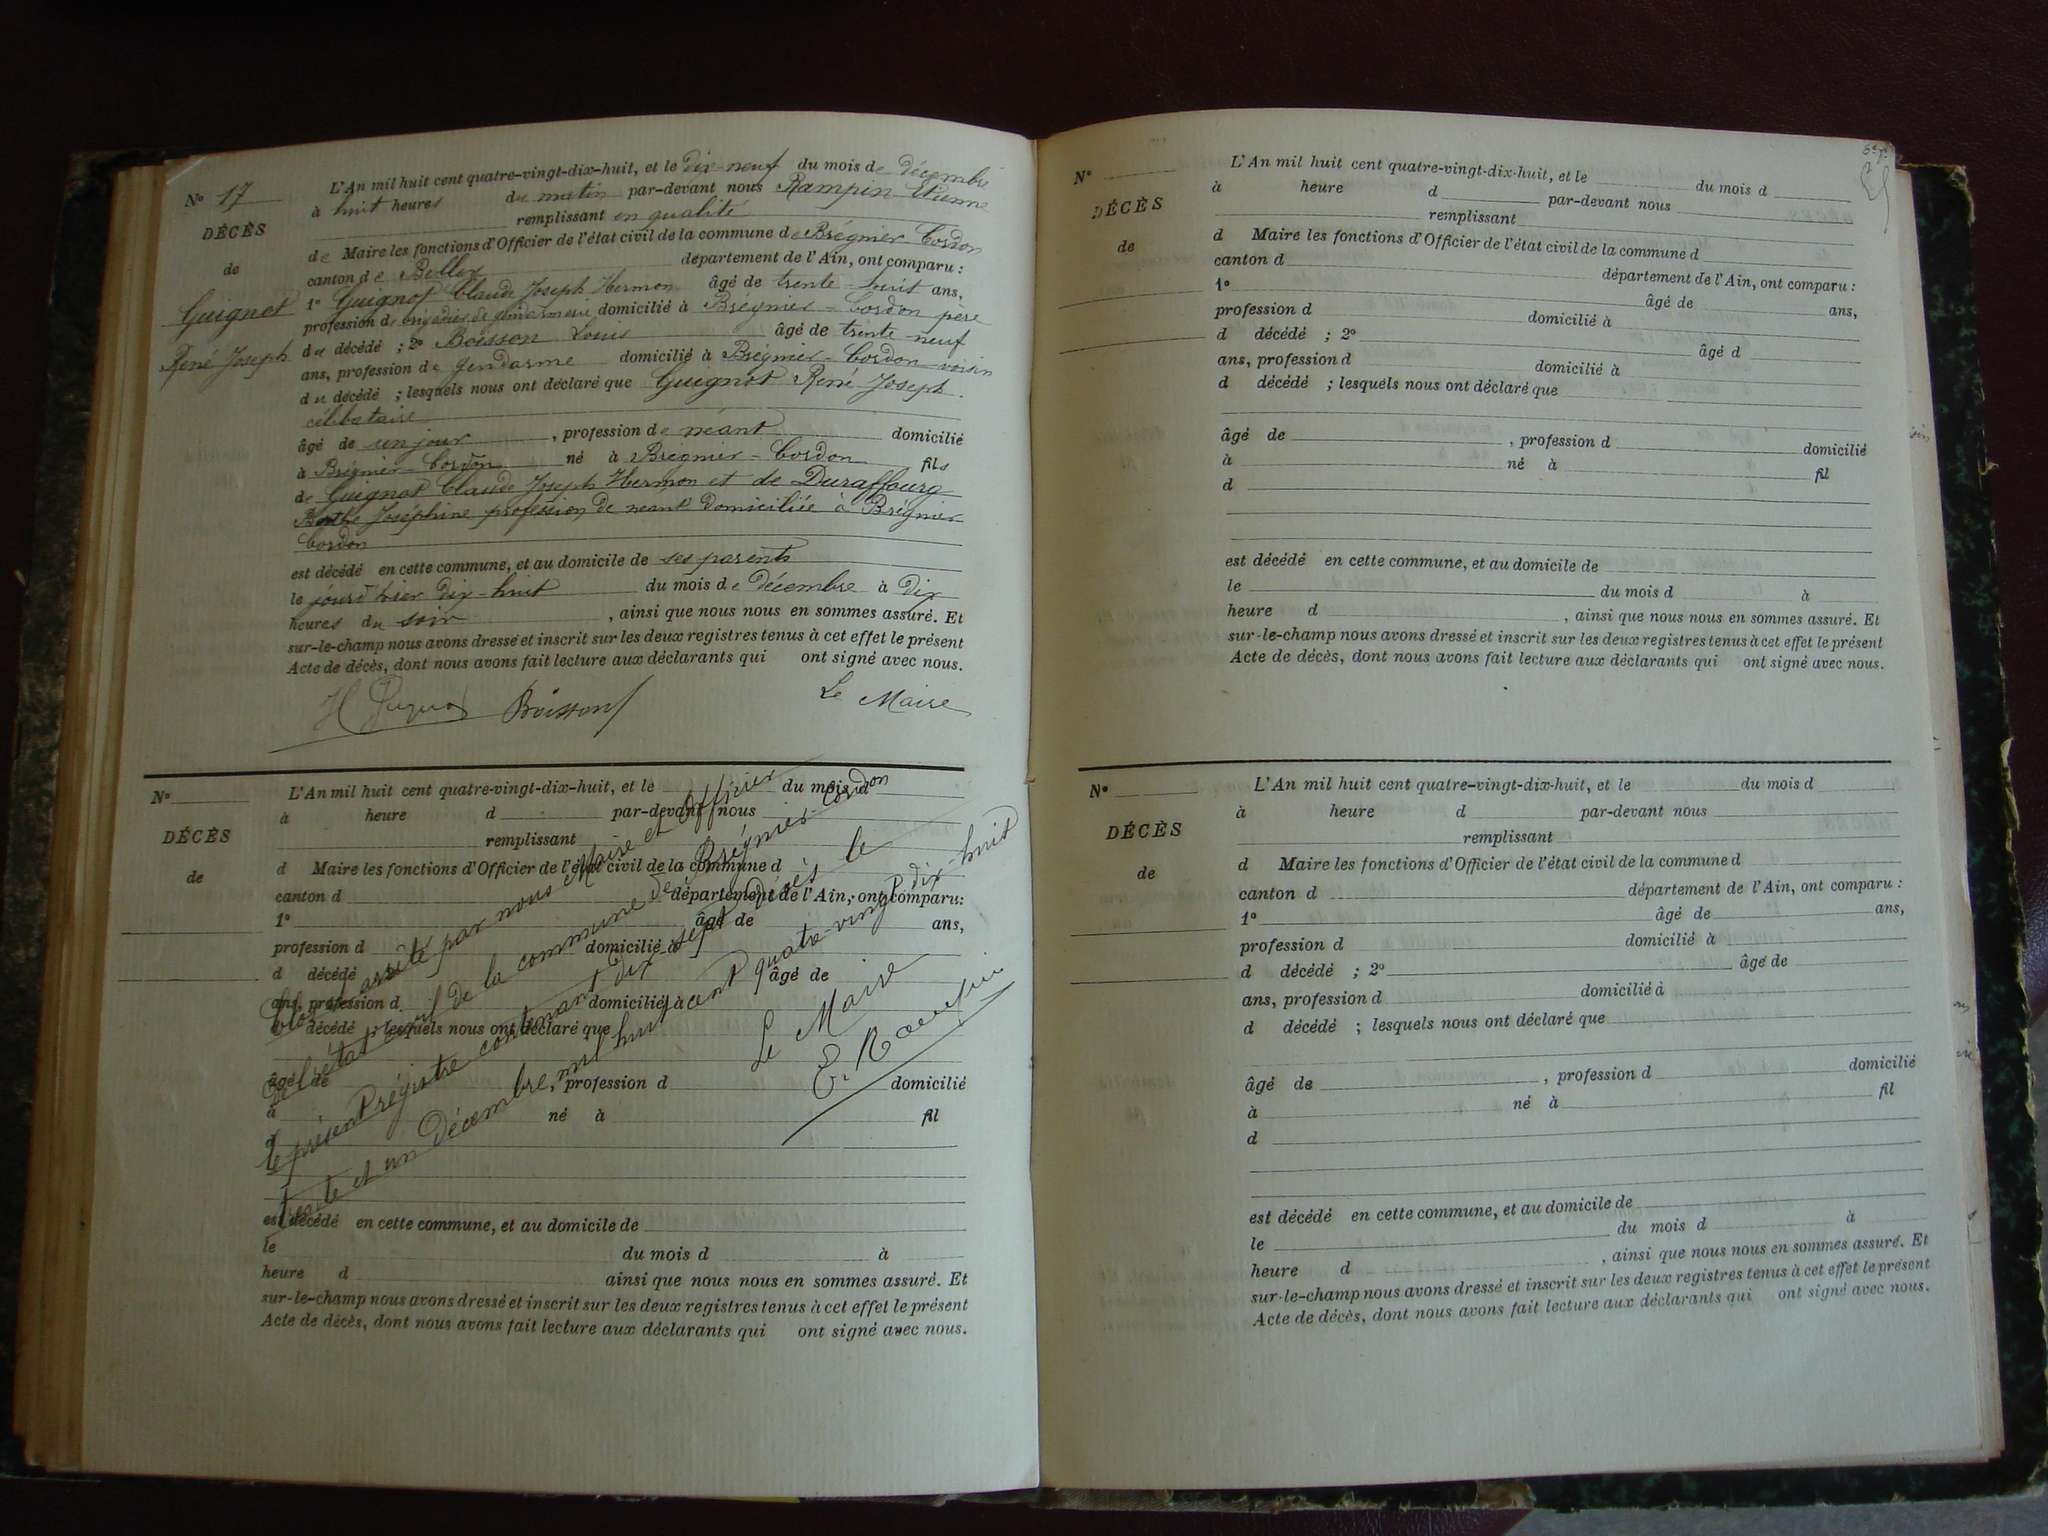 N° 17
DÉCÈS
de
Guignot
René Joseph
L'An mil huit cent quatre-vingt-dix-huit, et le dix-neuf du mois de décembre
à huit heures du matin par-devant nous Rampin Etienne
remplissant en qualité
de Maire les fonctions d'Officier de l'état civil de la commune de Brégnier-Cordon
canton de Belley département de l'Ain, ont comparu :
1° Guignot Claude Joseph Hermon âgé de trente-huit ans,
profession de brigadier de gendarmerie domicilié à Brégnier-Cordon père
du décédé ; 2° Boisson Louis âgé de trente-neuf
ans, profession de gendarme domicilié à Brégnier-Cordon voisin
du décédé ; lesquels nous ont déclaré que Guignot René Joseph
célibataire
âgé de un jour, profession de néant domicilié
à Brégnier-Cordon né à Brégnier-Cordon fils
de Guignot Claude Joseph Hermon et de Duraffourg
Berthe Joséphine profession de néant domiciliée à Brégnier
Cordon
est décédé en cette commune, et au domicile de ses parents
le jourd'hier dix-huit du mois de décembre à dix
heures du soir, ainsi que nous nous en sommes assuré. Et
sur-le-champ nous avons dressé et inscrit sur les deux registres tenus à cet effet le présent
Acte de décès, dont nous avons fait lecture aux déclarants qui ont signé avec nous.
H Guignot Boisson Le Maire
N°
DÉCÈS
de
L'An mil huit cent quatre-vingt-dix-huit, et le du mois d
à heure d par-devant nous
remplissant
d Maire les fonctions d'Officier de l'état civil de la commune d
canton d département de l'Ain, ont comparu :
1° âgé de ans,
profession d domicilié à
d décédé âgé de
ans, profession d domicilié à
d décédé ; lesquels nous ont déclaré que
âgé de , profession d domicilié
à né à fil
d
est décédé en cette commune, et au domicile de
le du mois d à
heure d ainsi que nous nous en sommes assuré. Et
sur-le-champ nous avons dressé et inscrit sur les deux registres tenus à cet effet le présent
Acte de décès, dont nous avons fait lecture aux déclarants qui ont signé avec nous.
Clos et arrêté par nous Maire et officier
de l'état civil de la commune de Brégnier-Cordon
le présent régistre contenant dix-sept décès le
trente et un décembre, mil huit cent quatre-vingt dix-huit
Le Maire
E. Rampin
N°
DÉCÈS
de
L'An mil huit cent quatre-vingt-dix-huit, et le du mois d
à heure d par-devant nous
remplissant
d Maire les fonctions d'Officier de l'état civil de la commune d
canton d département de l'Ain, ont comparu :
1° âgé de ans,
profession d domicilié à
d décédé ; 2° âgé d
ans, profession d domicilié à
d décédé ; lesquels nous ont déclaré que
âgé de , profession d domicilié
à né à fil
d
est décédé en cette commune, et au domicile de
le du mois d à
heure d , ainsi que nous nous en sommes assuré. Et
sur-le-champ nous avons dressé et inscrit sur les deux registres tenus à cet effet le présent
Acte de décès, dont nous avons fait lecture aux déclarants qui ont signé avec nous.
N°
DÉCÈS
de
L'An mil huit cent quatre-vingt-dix-huit, et le du mois d
à heure d par-devant nous
remplissant
d Maire les fonctions d'Officier de l'état civil de la commune d
canton d département de l'Ain, ont comparu :
1° âgé de ans,
profession d domicilié à
d décédé ; 2° âgé de
ans, profession d domicilié à
d décédé ; lesquels nous ont déclaré que
âgé de , profession d domicilié
à né à fil
d
est décédé en cette commune, et au domicile de
le du mois d à
heure d , ainsi que nous nous en sommes assuré. Et
sur-le-champ nous avons dressé et inscrit sur les deux registres tenus à cet effet le présent
Acte de décès, dont nous avons fait lecture aux déclarants qui ont signé avec nous.